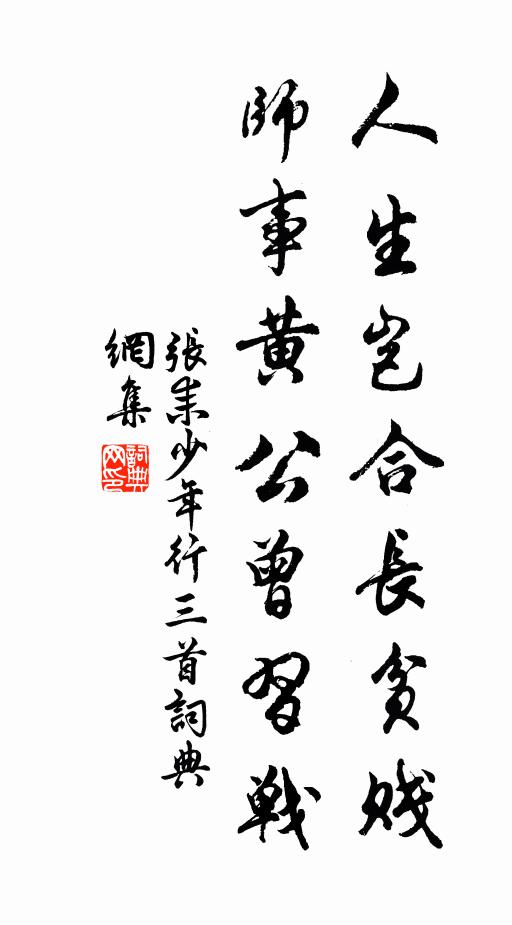 人生豈合長貧賤
師事黄公曾習戰
張耒少年行三首詞典
網集
詞典
网印